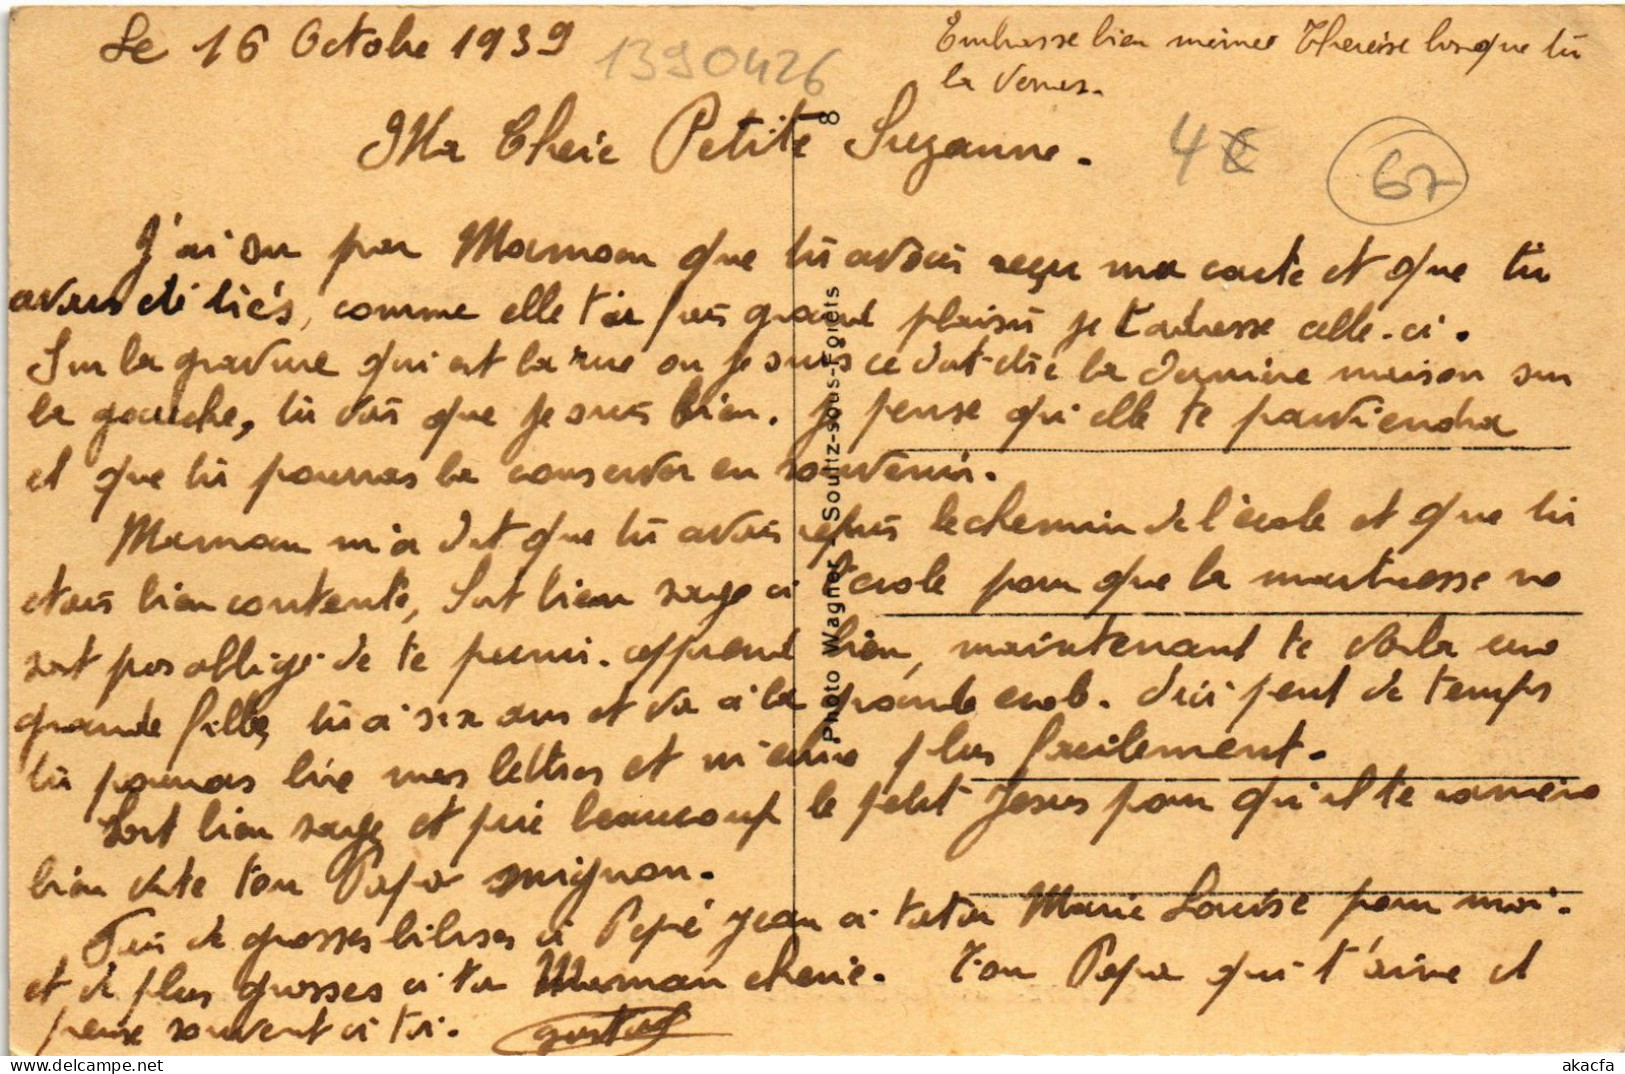 Le 16 Octobre 1939
13590426
Embrasse bien mémée Thereise lorsque tu
la verras.
Ma Cheie Petite Suzanne.
4€
67
J'ai su par Mamam que tu avais reçu ma carte et que tu
avais été, comme elle t'a fais grand plaisir je t'adresse celle-ci.
Sur la gravure qui est la rue ou je suis ce doit-être la dernière maison sur
la gauche, tu vois que je suis bien. Je pense qu'elle te parviendra
et que tu pourras la conserver en souvenir.
Maman m'a dit que tu avais repris le chemin de l'école et que tu
etais bien contente, Soit bien sage à l'école pour que la maitresse ne
soit pas obligé de te punir. apprend bien, maintenant te voila une
grande fille, tu a six ans et va a la grande ecole. d'ici peut de temps
tu pourras lire mes lettres et m'ecrire plus facilement.
Soit bien sage et prie beaucoup le petit Jesus pour qu'il te ramène
bien vite ton Papa mignon.
Fais de grosses bibises à Pépé Jean a tata Marie Louise pour moi.
et de plus grosses a ta Maman cherie. Ton Papa qui t'aime et
pense souvent a toi.
Gustave
Photo Wagner - Soultz-sous-Forêts 8
akacfa